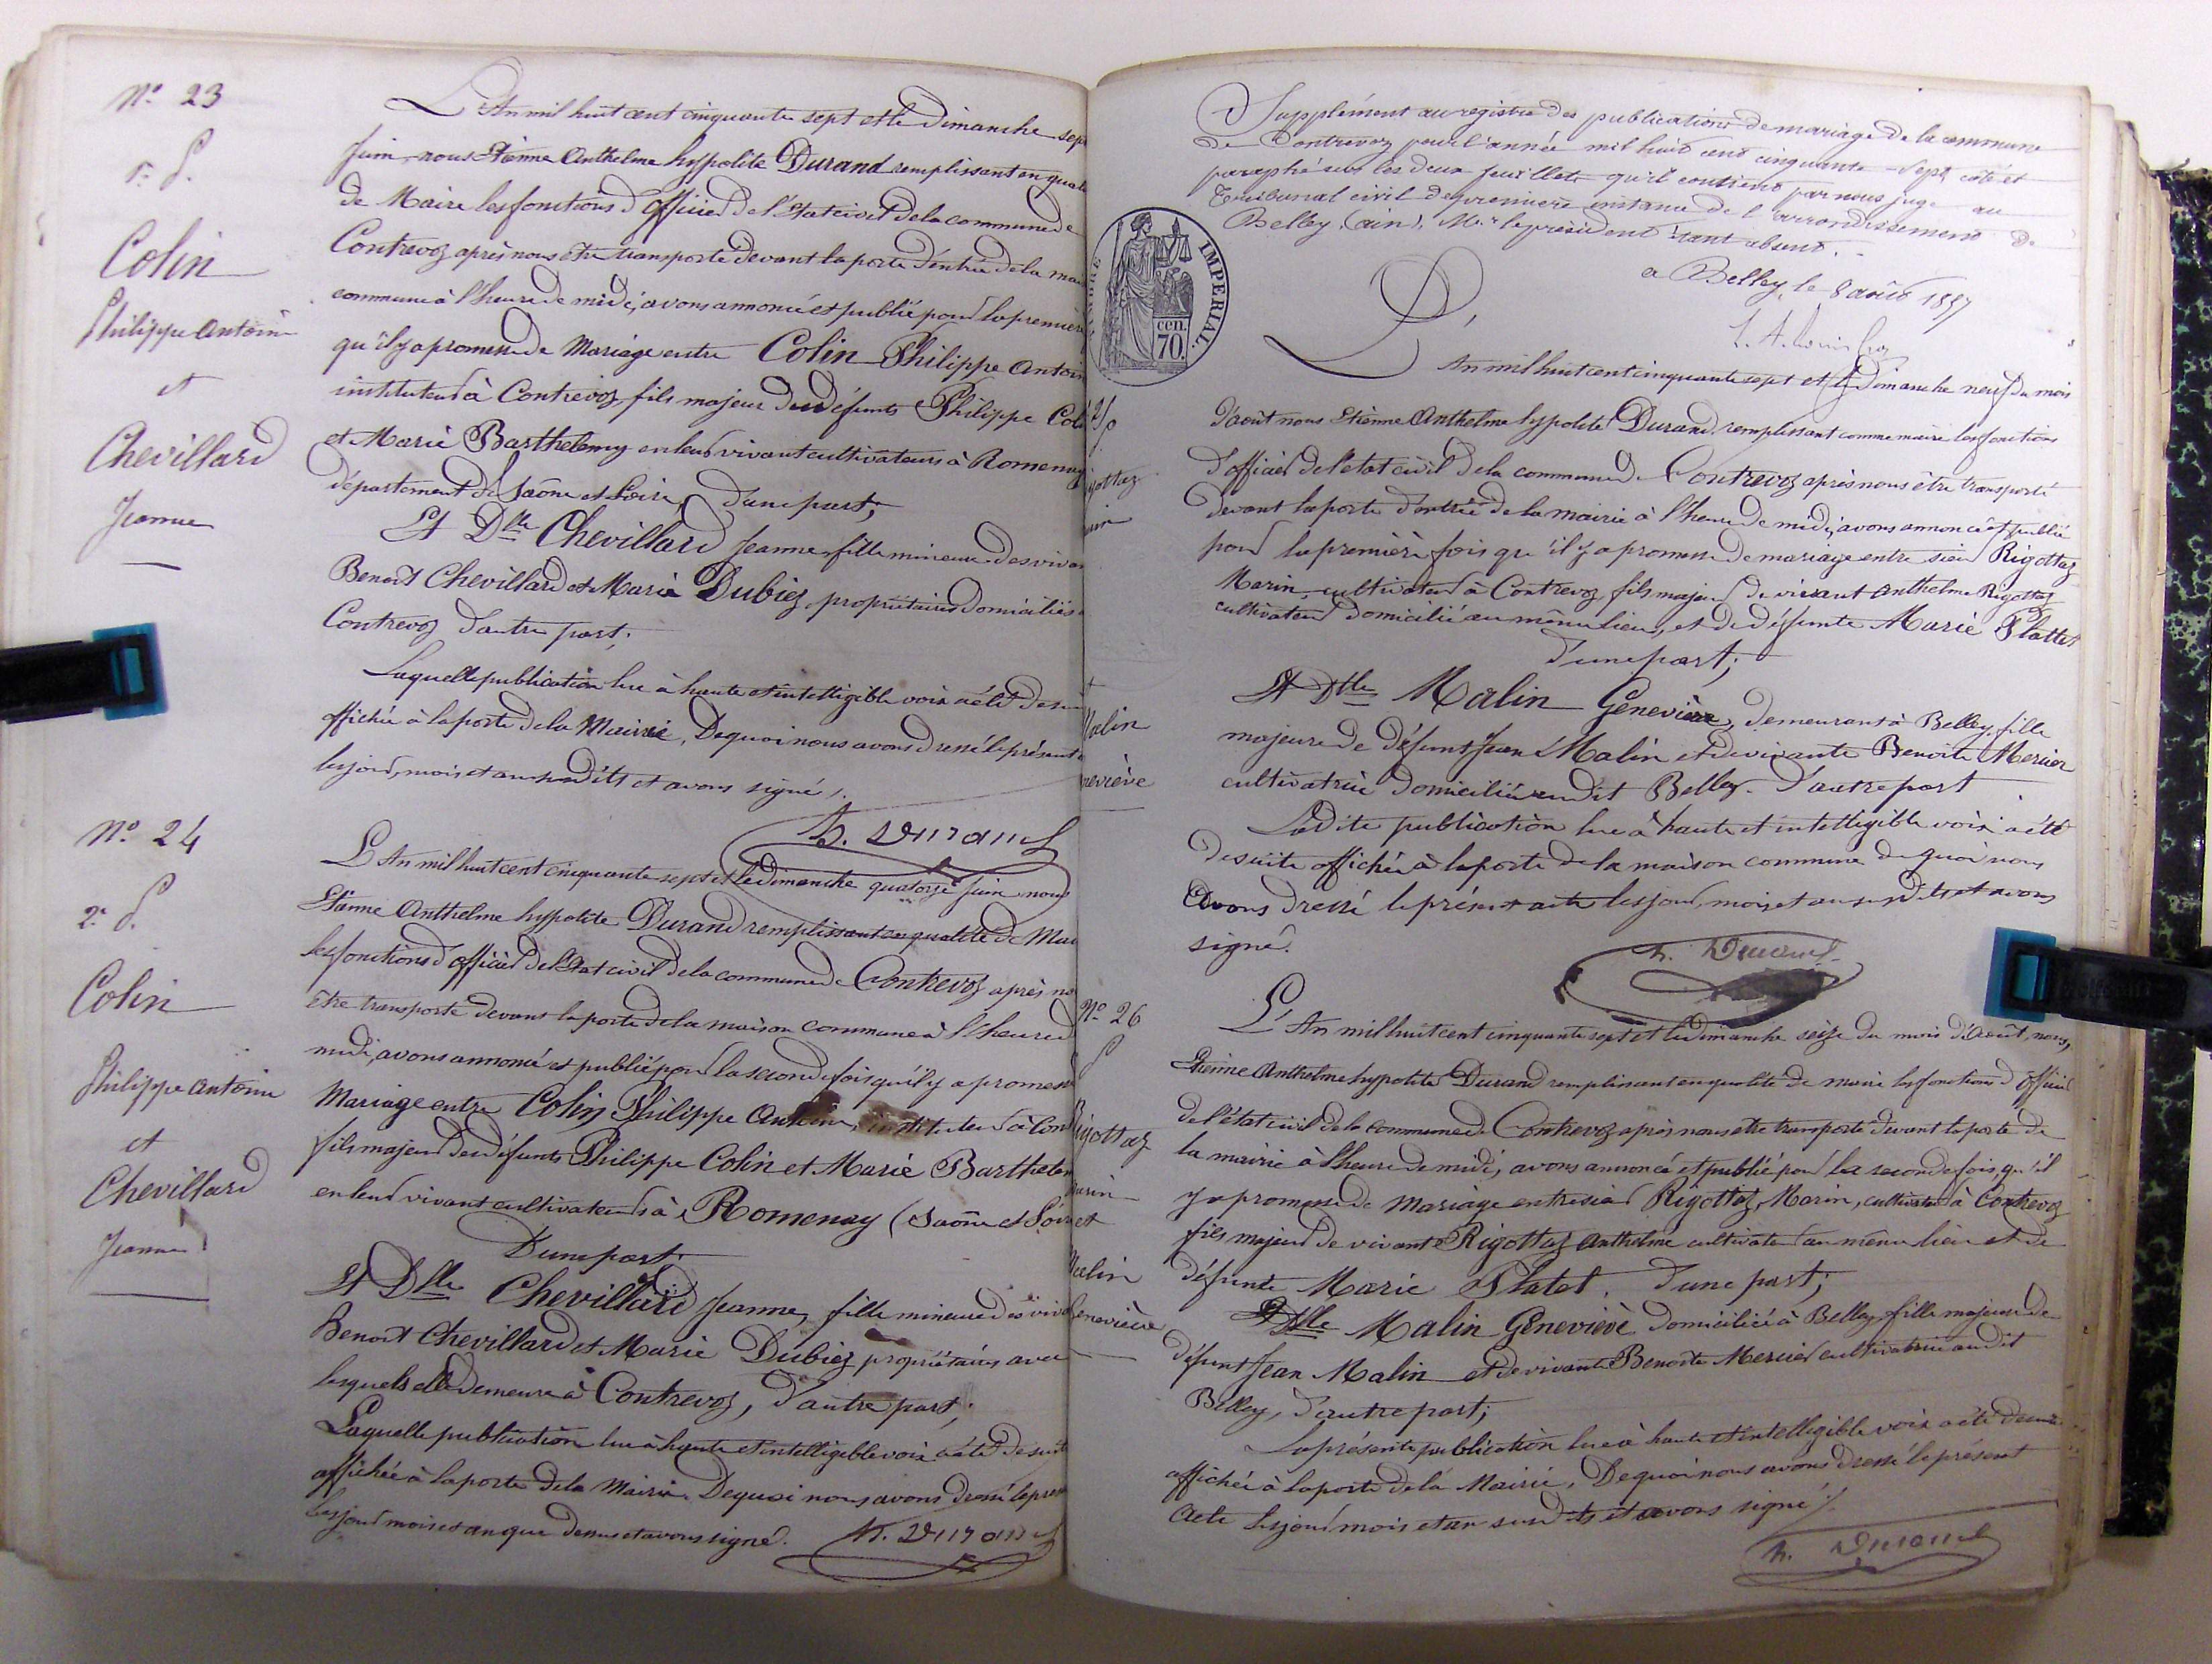 Nº 23
1re P.
Colin
Philippe Antoine
et
Chevillard
Jeanne
L'An mil huit cent cinquante sept et le Dimanche sept
Juin, nous Etienne Anthelme hyppolite Durand remplissant en qualité
de Maire les fonctions d'officier de l'Etat civil de la commune de
Contrevoz après nous être transporté devant la porte d'entrée de la mai
commune à l'heure de midi, avons annoncé et publié pour la première
qu'il y a promesse de Mariage entre Colin Philippe Antoin
instituteur à Contrevoz, fils majeur des défunts Philippe Coli
et Marie Barthelemy en leur vivant cultivateurs à Romenay
département de Saône et Loire, d'une part;
Et Dlle Chevillard Jeanne, fille mineure des vivan
Benoit Chevillard et Marie Dubiez propriétaires domiciliés
Contrevoz d'autre part;
Laquelle publication lue à haute et intelligible voix a été de su
affichée à la porte de la Mairie. De quoi nous avons dressé le présent
les jour, mois et an susdits et avons signé.
h. Durand
Nº 24
2e P.
Colin
Philippe Antoine
et
Chevillard
Jeanne
L'An mil huit cent cinquante sept et le Dimanche quatorze Juin nous
Etienne Anthelme hyppolite Durand remplissant en qualité de Mai
les fonctions d'officier de l'Etat civil de la commune de Contrevoz après no
être transporté devant la porte de la maison commune à l'heure d
midi, avons annoncé et publié pour la seconde fois qu'il y a promess
Mariage entre Colin Philippe Antoine, instituteur à Con
fils majeur des défunts Philippe Colin et Marie Barthelem
en leur vivant cultivateurs à Romenay (Saône et Loire
D'une part.
Et Dlle Chevillard Jeanne, fille mineure des viva
Benoit Chevillard et Marie Dubiez propriétaires avec
lesquels elle demeure à Contrevoz, d'autre part;
Laquelle publication lue à haute et intelligible voix a été de suit
affichée à la porte de la Mairie. De quoi nous avons dressé le prés
les jour mois et an que dessus et avons signé. h. Durand
Supplément au registre des publications de mariage de la commune
de Contrevoz pour l'année mil huit cent cinquante-sept, coté et
paraphé sur les deux feuillets qu'il contient par nous juge au
Tribunal civil de première instance de l'arrondissement de
Belley (ain), Mr le président étant absent.
a Belley, le 8 août 1857
TIMBRE IMPERIAL
cen.
70.
25
P
igottaz
arin
et
Malin
neviève
L'An mil huit cent cinquante sept et le Dimanche neuf du mois
d'août nous Etienne Anthelme hyppolite Durand remplissant comme maire les fonctions
d'officier de l'état civil de la commune de Contrevoz après nous être transporté
devant la porte d'entrée de la mairie à l'heure de midi, avons annoncé et publié
pour la première fois qu'il y a promesse de mariage entre sieur Rigottaz
Marin, cultivateur à Contrevoz, fils majeur de vivant Anthelme Rigottaz
cultivateur domicilié au même lieu, et de défunte Marie Plattet
d'une part;
Et Dlle Malin Geneviève, demeurant à Belley, fille
majeure de défunt Jean Malin et de vivante Benoite Mercier
cultivatrice domiciliée audit Belley. d'autre part
Ladite publication lue à haute et intelligible voix a été
de suite affichée à la porte de la maison commune de quoi nous
avons dressé le présent acte les jour, mois et an susdits et avons
signé.
h. Durand
Nº 26
P
Rigottaz
Marin
et
Malin
Geneviève
L'An mil huit cent cinquante sept et le Dimanche seize du mois d'Août, nous,
Etienne Anthelme hyppolite Durand remplissant en qualité de maire les fonctions d'officier
de l'état civil de la commune de Contrevoz après nous être transporté devant la porte de
la mairie à l'heure de midi, avons annoncé et publié pour la seconde fois qu'il
y a promesse de Mariage entre sieur Rigottaz Marin, cultivateur à Contrevoz
fils majeur de vivant Rigottaz Anthelme cultivateur au même lieu et de
défunte Marie Platet. d'une part;
Et Dlle Malin Geneviève domiciliée à Belley, fille majeure de
défunt Jean Malin et de vivante Benoite Mercier cultivatrice audit
Belley, d'autre part;
La présente publication lue à haute et intelligible voix a été de suite
affichée à la porte de la Mairie. De quoi nous avons dressé le présent
acte les jour mois et an susdits et avons signé.
h. Durand